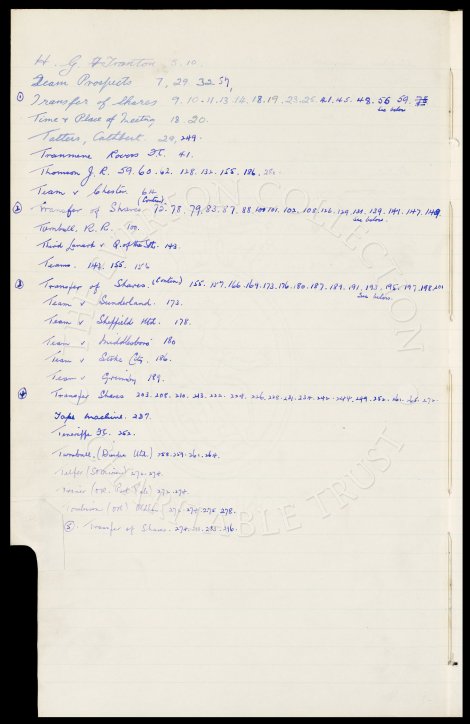 H. G. 5.10.
Team Prospects 7, 29. 32. 57,
① Transfer of Shares 9. 10. 11. 13. 14. 18. 19. 23. 25. 41. 45. 48. 56 59.
see below
Time & Place of Meeting 18. 20.
Tatters, Cuthbert 29, 249.
Tranmere Rovers F.C. 41.
Thomson J. R. 59. 60. 62. 128. 132. 155. 186.
Team v Chester 64
② Transfer of Shares (Contin) 72. 78. 79. 83. 87. 88 100 101. 103. 108. 126. 129 131. 139. 141. 147. 149
see below.
Turnbull, R. R. 100.
Third Lanark v Q. of the Sth. 143.
Teams. 143. 155. 156
③ Transfer of Shares. (Contin) 155. 157. 166. 169. 173. 176. 180. 187. 189. 191. 193. 195. 197. 198. 201
See below.
Team v Sunderland. 173.
Team v Sheffield Utd. 178.
Team v Middlesboro' 180
Team v Stoke City. 186.
Team v Grimsby 189.
④ Transfer Shares 203. 208. 210. 213. 222. 224. 226. 228. 231. 234. 242. 244. 249. 252. 261. 265. 272.
Tape machine. 237.
Teneriffe F.C. 252.
Turnball. 258. 259. 261. 264.
Telfer 272. 274.
272. 274.
272. 274. 275. 278.
⑤ Transfer of Shares. 274. 285. 296.
COLLECTION
CHARITABLE TRUST